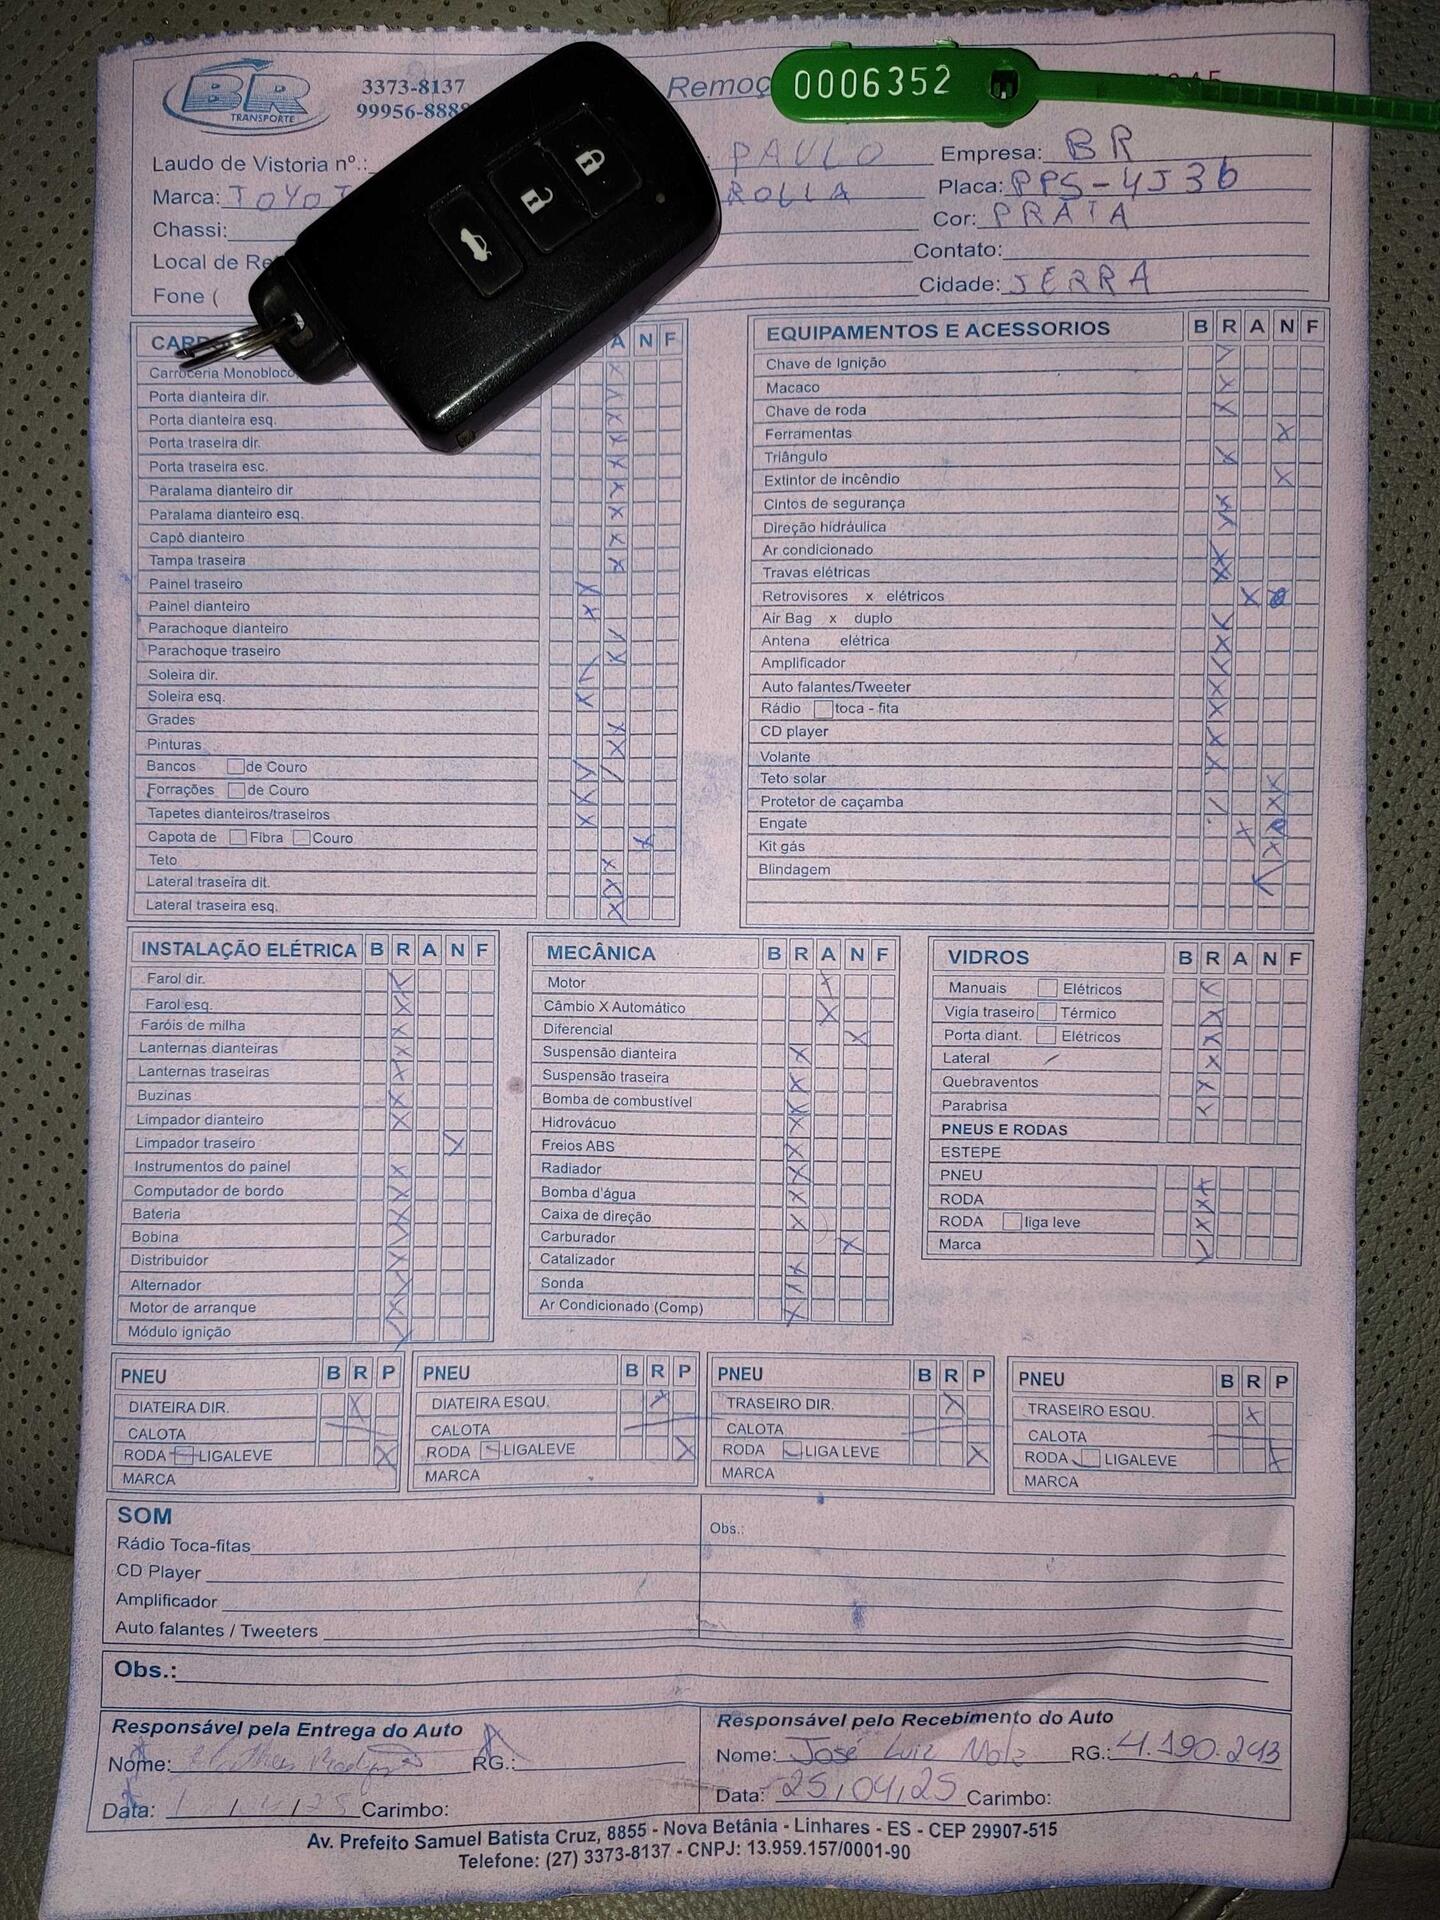 BR
TRANSPORTE
3373-8137
99956-888
Remoç
0006352
Laudo de Vistoria nº.:
PAULO
Empresa: BR
Marca: TOYOT
ROLLA
Placa: PPS-4J36
Chassi:
Cor: PRATA
Local de Re
Contato:
Fone (
Cidade: SERRA
A N F
Carroceria Monobloco
Porta dianteira dir.
Porta dianteira esq.
Porta traseira dir.
Porta traseira esc.
Paralama dianteiro dir
Paralama dianteiro esq.
Capô dianteiro
Tampa traseira
Painel traseiro
Painel dianteiro
Parachoque dianteiro
Parachoque traseiro
Soleira dir.
Soleira esq.
Grades
Pinturas
Bancos de Couro
Forrações de Couro
Tapetes dianteiros/traseiros
Capota de Fibra Couro
Teto
Lateral traseira dit.
Lateral traseira esq.
EQUIPAMENTOS E ACESSORIOS B R A N F
Chave de Ignição
Macaco
Chave de roda
Ferramentas
Triângulo
Extintor de incêndio
Cintos de segurança
Direção hidráulica
Ar condicionado
Travas elétricas
Retrovisores x elétricos
Air Bag x duplo
Antena elétrica
Amplificador
Auto falantes/Tweeter
Rádio toca - fita
CD player
Volante
Teto solar
Protetor de caçamba
Engate
Kit gás
Blindagem
INSTALAÇÃO ELÉTRICA B R A N F
Farol dir.
Farol esq.
Faróis de milha
Lanternas dianteiras
Lanternas traseiras
Buzinas
Limpador dianteiro
Limpador traseiro
Instrumentos do painel
Computador de bordo
Bateria
Bobina
Distribuidor
Alternador
Motor de arranque
Módulo ignição
MECÂNICA B R A N F
Motor
Câmbio X Automático
Diferencial
Suspensão dianteira
Suspensão traseira
Bomba de combustível
Hidrovácuo
Freios ABS
Radiador
Bomba d'água
Caixa de direção
Carburador
Catalizador
Sonda
Ar Condicionado (Comp)
VIDROS B R A N F
Manuais Elétricos
Vigia traseiro Térmico
Porta diant. Elétricos
Lateral
Quebraventos
Parabrisa
PNEUS E RODAS
ESTEPE
PNEU
RODA
RODA liga leve
Marca
PNEU B R P
DIATEIRA DIR.
CALOTA
RODA LIGALEVE
MARCA
PNEU B R P
DIATEIRA ESQU.
CALOTA
RODA LIGALEVE
MARCA
PNEU B R P
TRASEIRO DIR.
CALOTA
RODA LIGA LEVE
MARCA
PNEU B R P
TRASEIRO ESQU.
CALOTA
RODA LIGALEVE
MARCA
SOM
Rádio Toca-fitas
CD Player
Amplificador
Auto falantes / Tweeters
Obs.:
Obs.:
Responsável pela Entrega do Auto
Nome:
RG.:
Data:
Carimbo:
Responsável pelo Recebimento do Auto
Nome: José Luiz
RG.: 4.190.243
Data: 25/04/25 Carimbo:
Av. Prefeito Samuel Batista Cruz, 8855 - Nova Betânia - Linhares - ES - CEP 29907-515
Telefone: (27) 3373-8137 - CNPJ: 13.959.157/0001-90